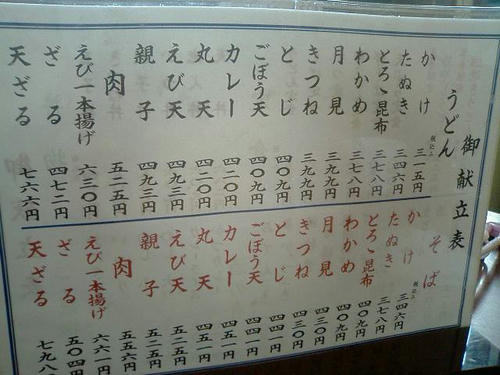 御献立表
うどん
税込み
かけ 三一五円
たぬき 三四六円
とろゝ昆布 三七八円
わかめ 三七八円
月見 三九九円
きつね 三九九円
とじ 四〇九円
ごぼう天 四〇九円
カレー 四二〇円
丸天 四二〇円
えび天 四九三円
親子 四九三円
肉 五二五円
えび一本揚げ 六三〇円
ざる 四七二円
天ざる 七六六円
そば
税込み
かけ 三四六円
たぬき 三七八円
とろゝ昆布 四〇九円
わかめ 四〇九円
月見 四三〇円
きつね 四三〇円
とじ 四四一円
ごぼう天 四四一円
カレー 四五一円
丸天 四五一円
えび天 五二五円
親子 五二五円
肉 五五六円
えび一本揚げ 六六一円
ざる 五〇四円
天ざる 七九八